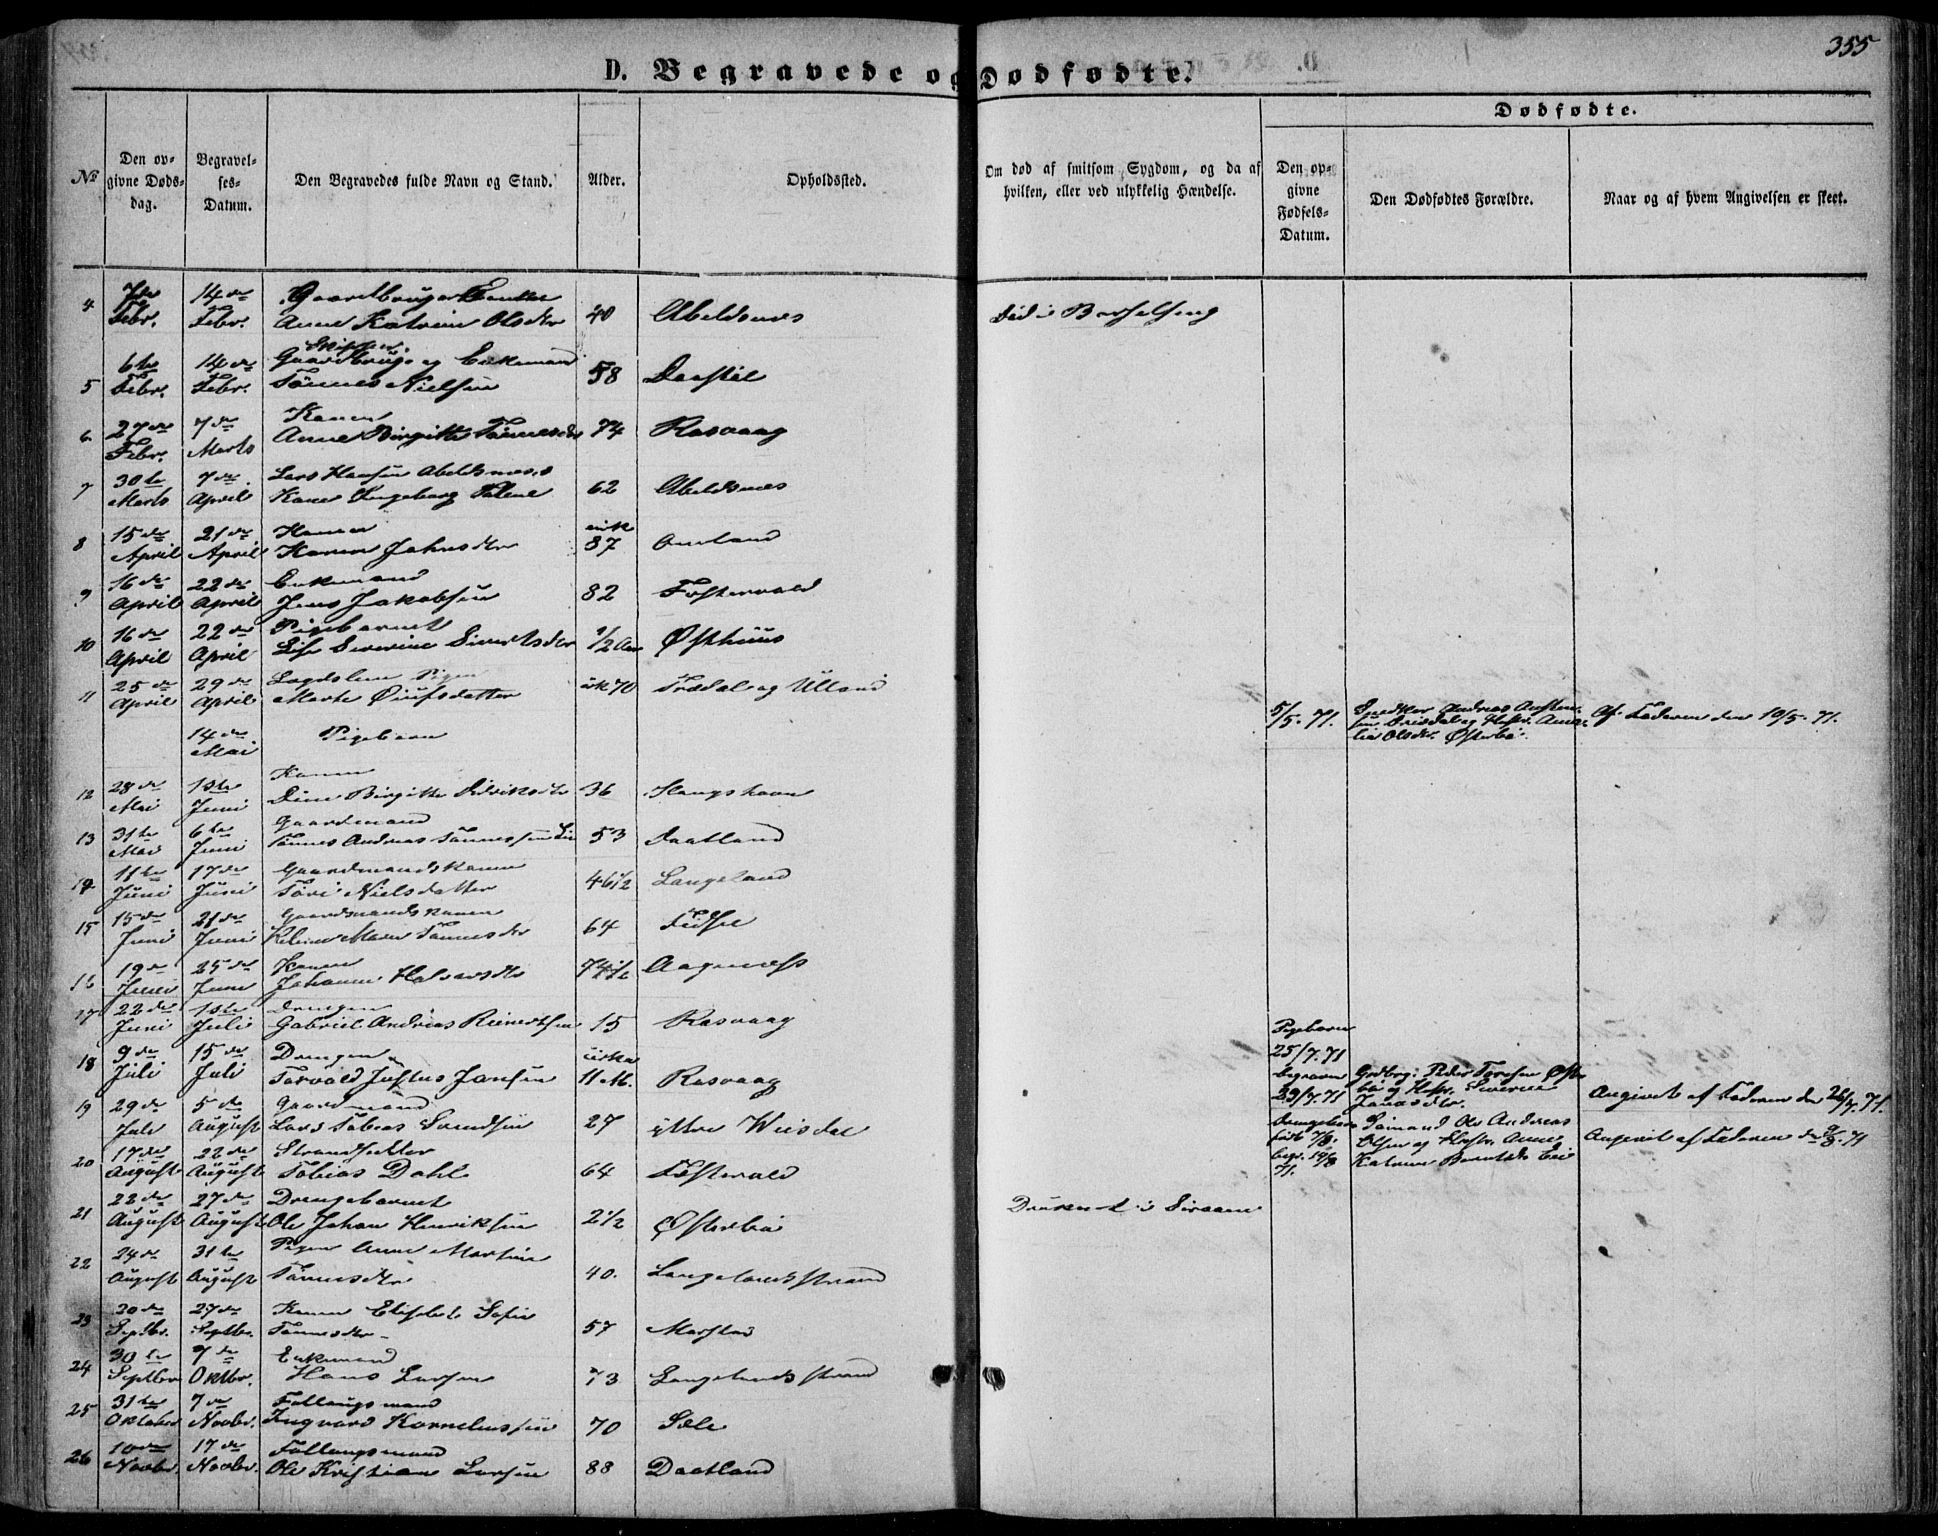 355
D. Begravede og Dødfødte.
Dødfødte.
№
Den opgivne Dødsdag.
Begravelses-Datum.
Den Begravedes fulde Navn og Stand.
Alder.
Opholdssted.
Om død af smitsom Sygdom, og da af hvilken, eller ved ulykkelig Hændelse.
Den opgivne Fødsels-Datum.
Den Dødfødtes Forældre.
Naar og af hvem Angivelsen er skeet.
4 7de Febr. 14de Febr. Gaardbruger Enke
Anne Katrine Olsdtr 40 Abeldsnes Död i Barselseng
5 6te Febr. 14de Febr. Gaardbruger og Enkemand
Tönnes Nielsen 58
6 27de Febr. 7de Marts Konen
Anne Birgitte Tönnesdtr 74 Rasvaag
7 30te Marts 7de April Lars Hansen Abeldsnes
Kone Ingeborg 62 Abeldsnes
8 15de April 21de April Konen
Karen Jahnsdtr cirk 87 Omland
9 16de April 22de April Enkemand
Jens Jakobsen 82 Fostervold
10 16de April 22de April Pigebarnet
Lise Severine Sivertsdtr 1/2 Aar Østhuus
11 25de April 29de April Lægdslem Pigen
Marte cirk 70 og Ulland
14de Mai Pigebarn
5/5. 71. Snedker Andreas
og Hstr. Ama-
lia Olsdtr. Østerbö
Af Faderen den 10/5. 71.
12 28de Mai 1ste Juni Konen
Dine Birgitte Didriksdtr 36 Stangshavn
13 31te Mai 6te Juni Gaardmand
Tönnes Andreas Tönnessen 53 Daatland
14 11te Juni 17de Juni Gaardmandskonen
Töri Nielsdatter 46 1/2 Langeland
15 15de Juni 21de Juni Gaardmandskonen
Maren Tönnesdtr 64 Fidsel
16 19de Juni 25de Juni Konen
Johanne Halvorsdtr 74 1/2
17 22de Juni 1ste Juli Drengen
Gabriel Andreas Reinertsen 15 Rasvaag
18 9de Juli 15de Juli Drengen
Torvald Justus Jansen cirka 11 M. Rasvaag
Pigebarn
25/7. 71
begraven
29/7. 71
Grdbrg: Peder Torsen Øster-
bö og Hstr. Severine
Jonasdtr.
Angivet af Faderen den 26/7. 71.
19 29de Juli 5de August Gaardmand
Lars Tobias Svendsen 27 ytre
Drengebarn
født 7/8.
begr. 12/8
71.
Sömand Ole Andreas
Olsen og Hstr. Anne
Katrine Berntsdtr
Angivet af Faderen
20 17de August 22de August Strandsidder
Tobias Dahl 64 Fostervold
21 22de August 27de August Drengebarnet
Ole Johan Henriksen 2 1/2 Østerbö Druknet i
22 24de August 31te August Pigen Anne Martine
Tönnesdtr 40. Langelandsstrand
23 20de Septbr. 27de Septbr. Konen Elisabet Sofie
Tönnesdtr 57
24 30te Septbr 7de Oktbr. Enkemand
Hans Larsen 73 Langelandsstrand
25 31te Oktober 7de Novbr. Fattigmand
Ingvard Korneliussen 70 Sele
26 10de Novbr. 17de Novbr. Fattigmand
Ole Kristian Larsen 88 Daatland